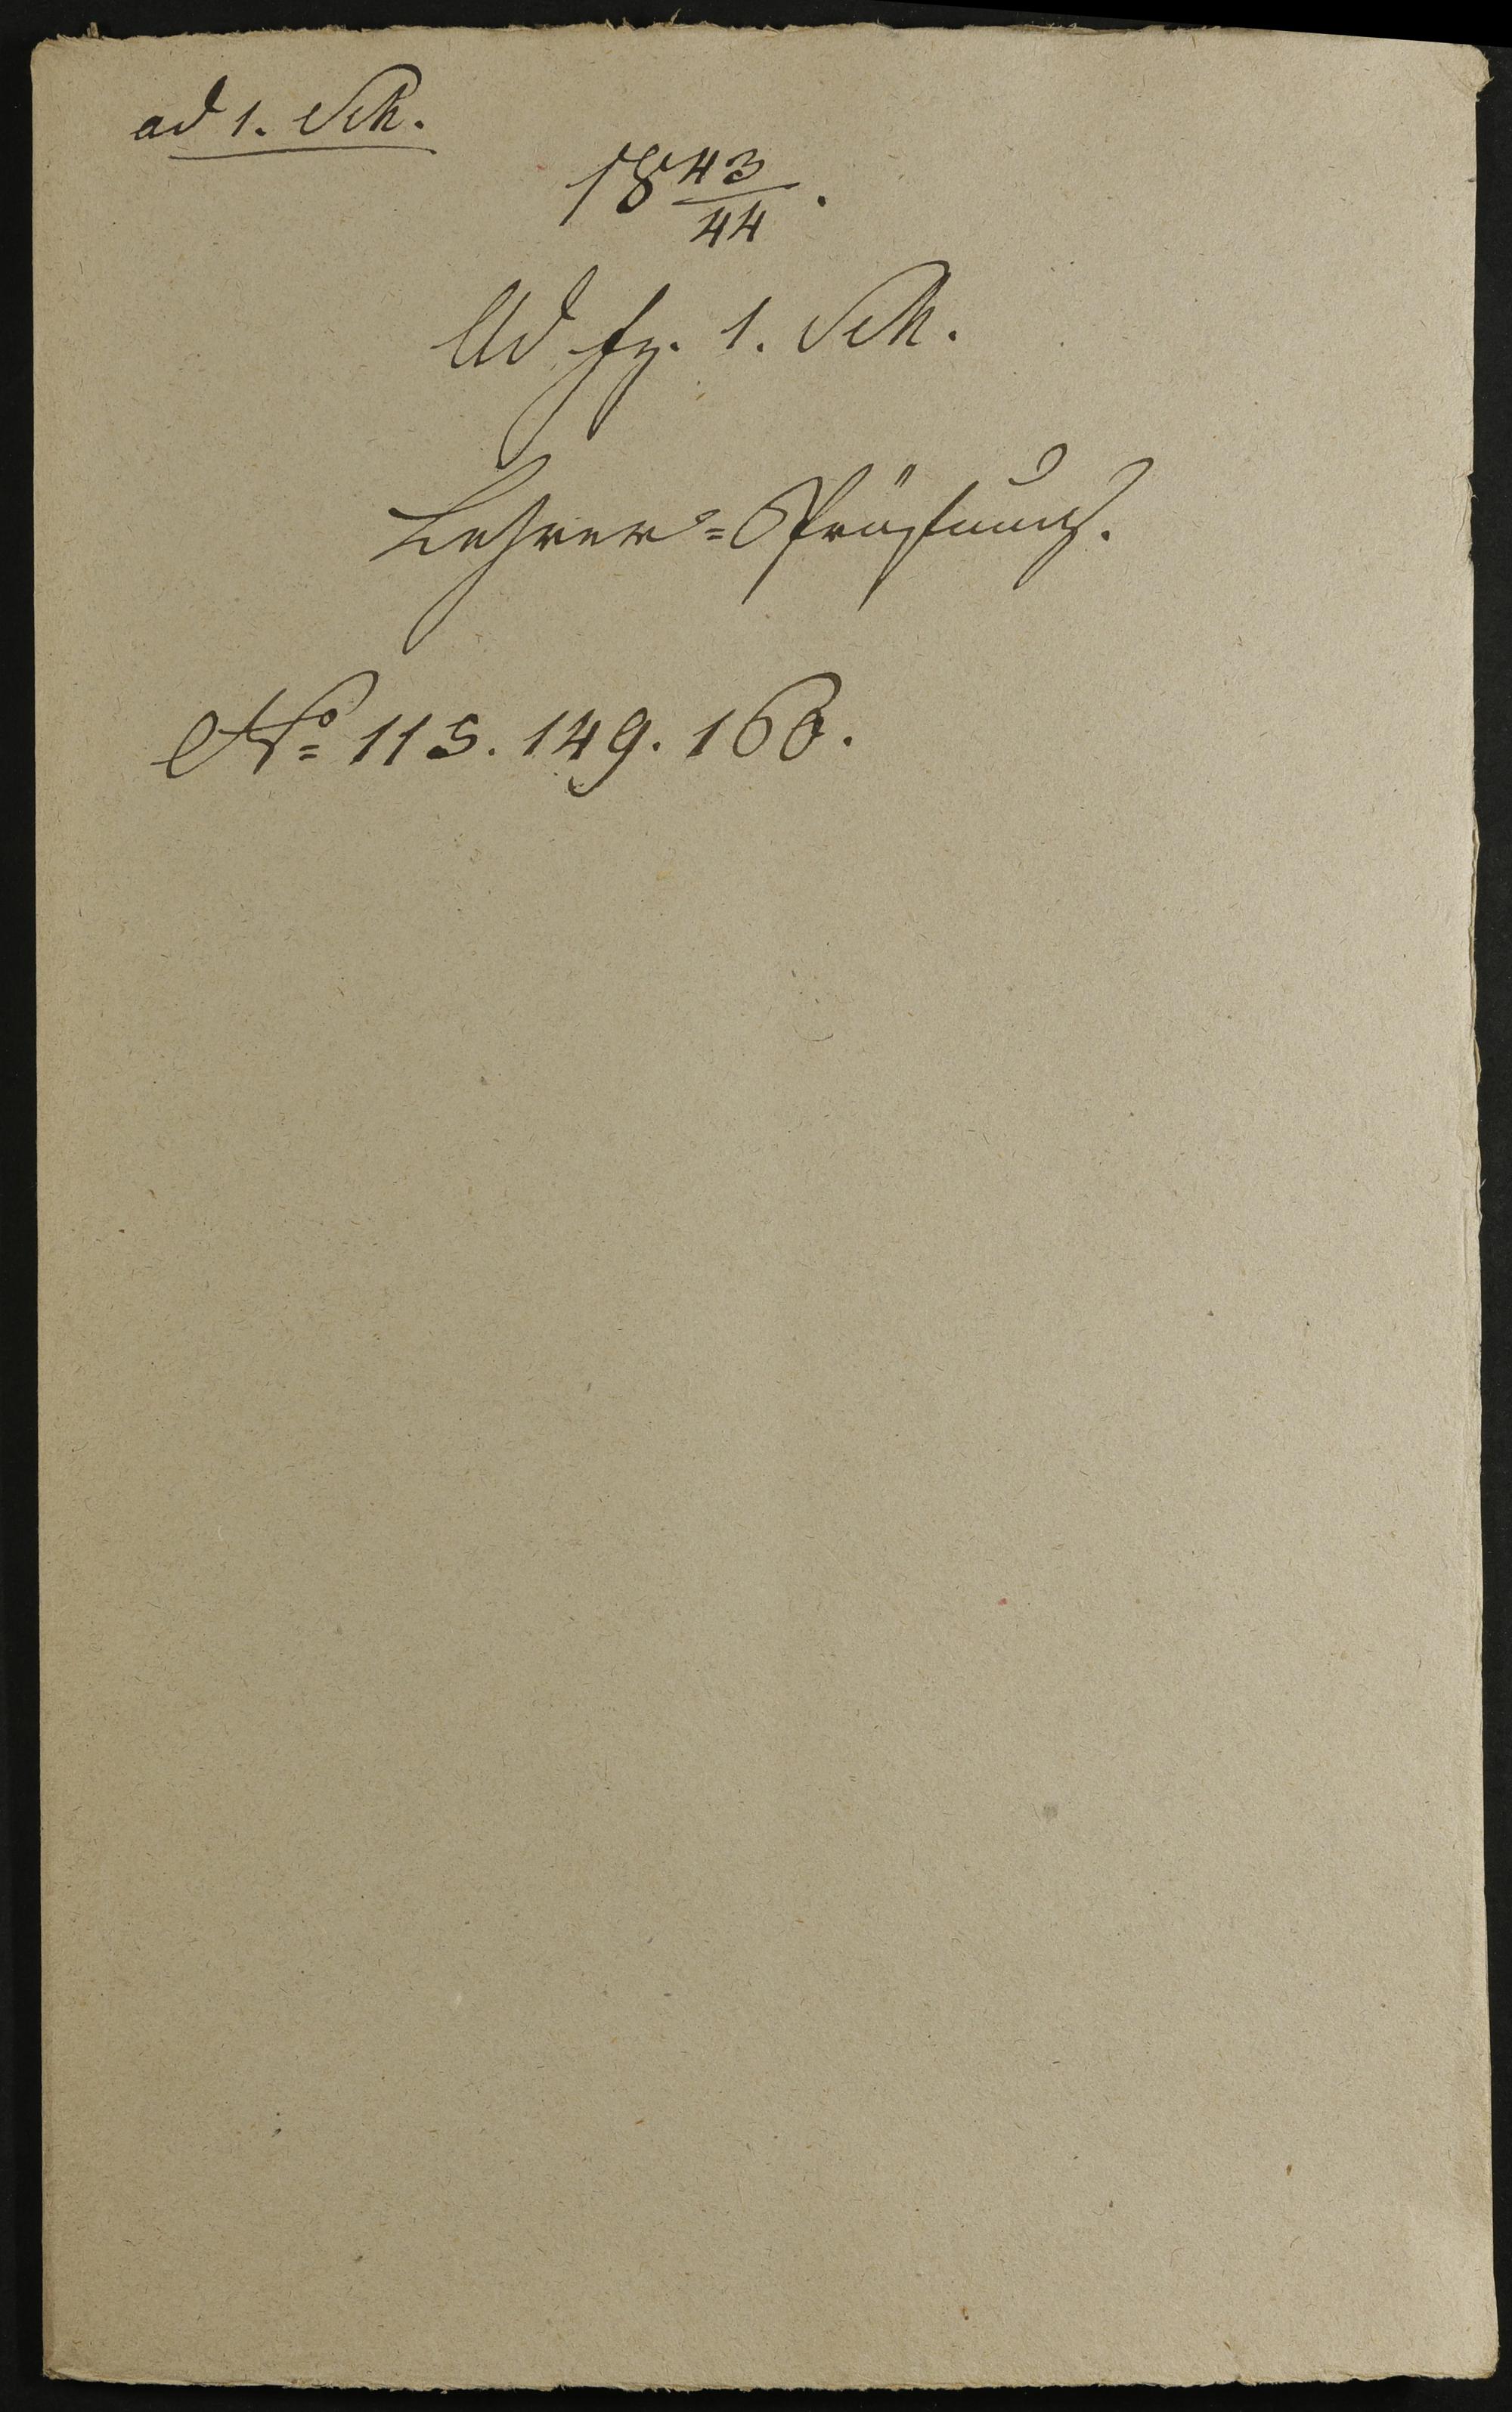 ad 1. Sch.
18 43/44.
Ad fz. 1. Sch.
Lehrer=Prüfung.
No. 115. 149. 166.